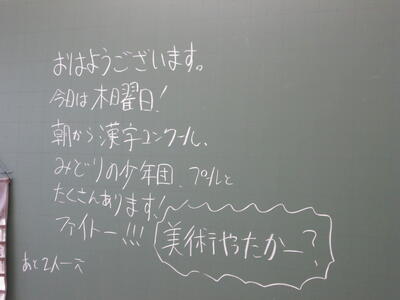 おはようございます。
今日は木曜日!
朝から漢字コンクール、
みどりの少年団、プールと
たくさんあります!
ファイトー!!!
美術やったかー?
あと2人